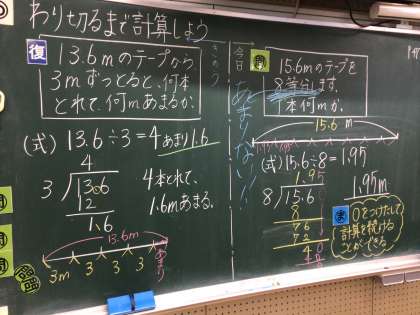 わり切るまで計算しよう
復
13.6mのテープから
3mずつとると、何本
とれて、何mあまるか。
(式) 13.6÷3=4あまり1.6
4
3 13.6
12
1.6
4本とれて、
1.6mあまる。
13.6m
3m 3 3 3 あまり
きのう
今日
あまりない!!
問
15.6mのテープを
8等分します。
1本何mか。
15.6 m
(式) 15.6÷8=1.95
1.95
8 15.6
8
76
72
40
1.95m
ま
0をつけたして
計算を続ける
ことができる